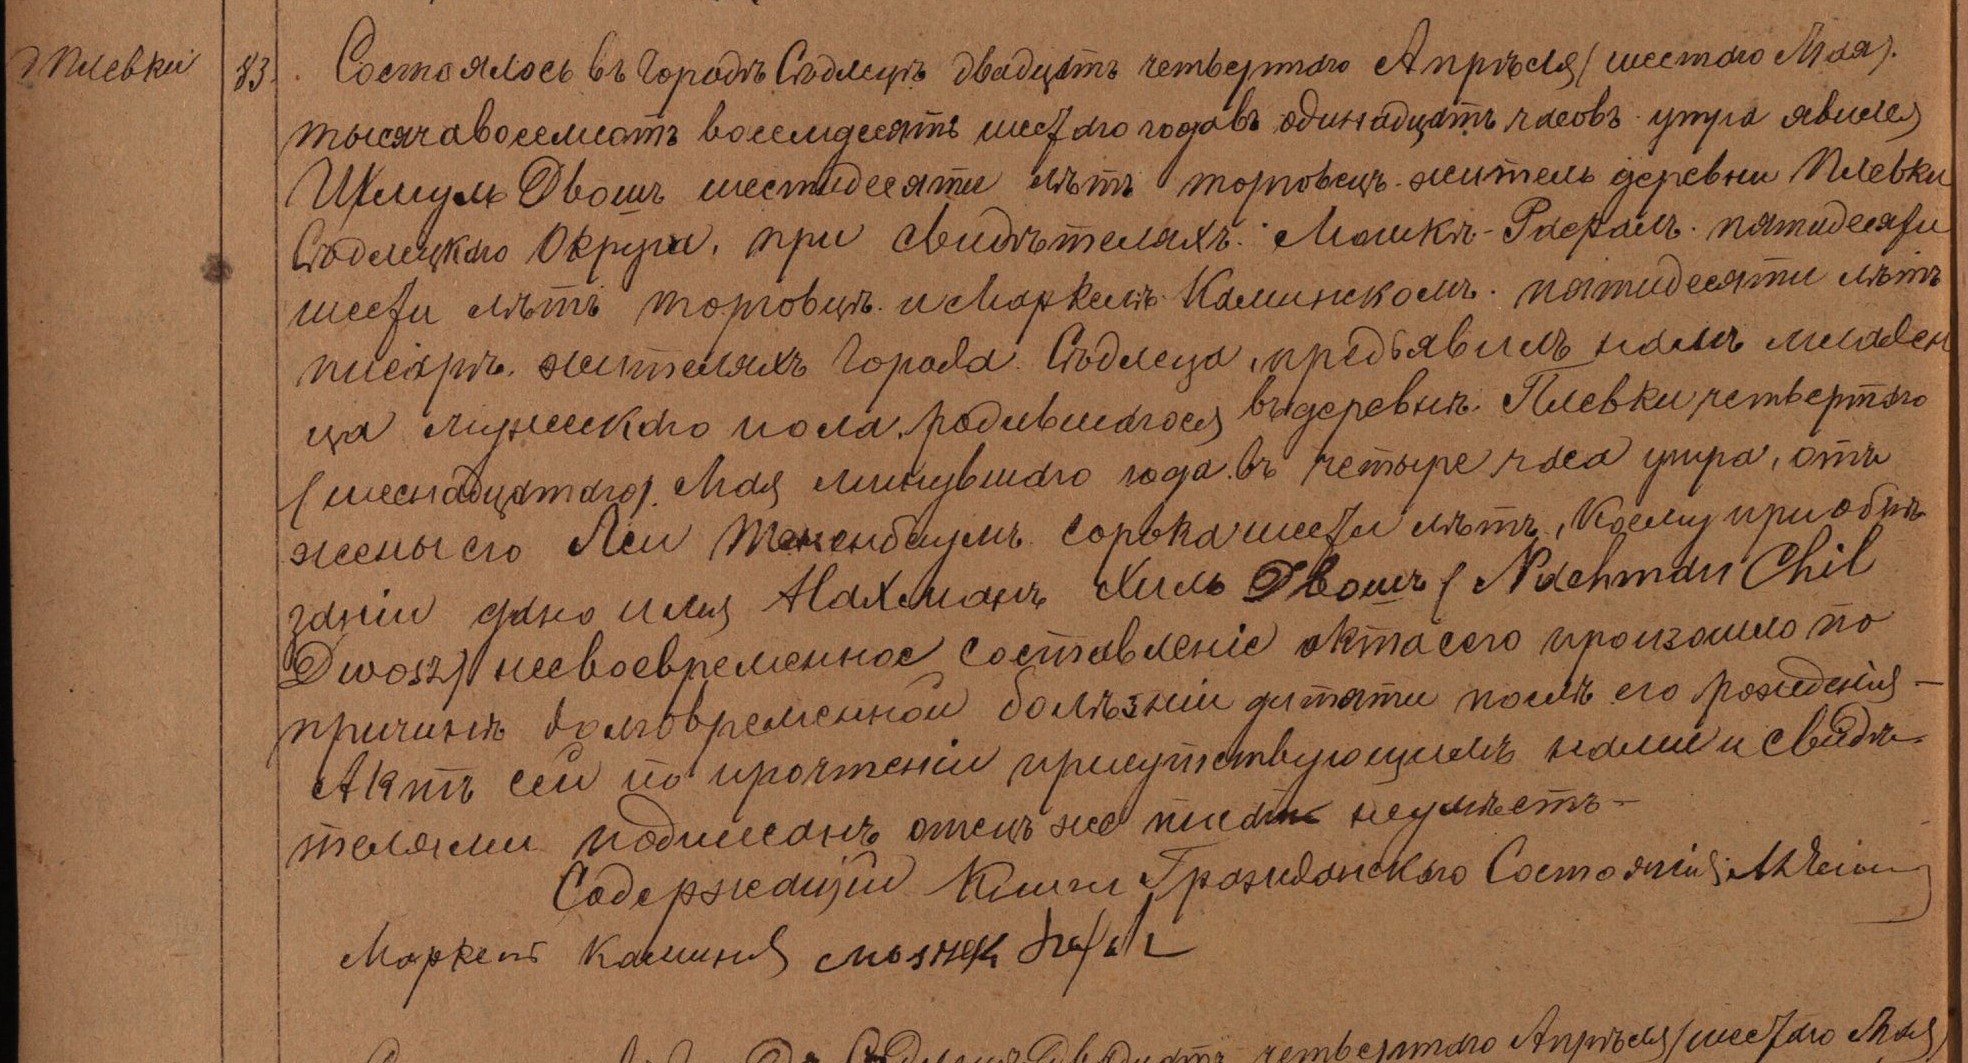 д Плевки 83. Состоялось въ городѣ Сѣдлецѣ двадцать четвертаго Апрѣля / шестаго Мая /.
тысяча восемьсотъ восемдесятъ шестаго года въ одинадцать часовъ утра явился
Шмуль Двошъ шестидесяти лѣтъ торговецъ житель деревни Плевки
Сѣдлецкаго Округа, при свидѣтеляхъ: Мошкѣ - пятидесяти
шести лѣтъ торговцѣ и Маркелѣ Каминскомъ пятидесяти лѣтъ
писарѣ жителяхъ города Сѣдлеца, предъявилъ намъ младен
ца мужескаго пола, родившагося въ деревнѣ Плевки, четвертаго
/ шеснадцатаго / Мая минувшаго года въ четыре часа утра, отъ
жены его Леи Тененбаумъ сорока шести лѣтъ, коему при обрѣ
заніи дано имя Нахманъ Хиль Двошъ / Nachman Chil
Dwosz / несвоевременное составленіе акта сего произошло по
причинѣ долговременной болѣзніи дитяти послѣ его рожденія –
Актъ сей по прочтеніи присутствующимъ нами и свидѣ-
телями подписанъ отецъ же писать неумѣетъ –
Содержащій Книги Гражданскаго Состоянія
Маркель Камински
четвертаго Апрѣля / шестаго Мая /